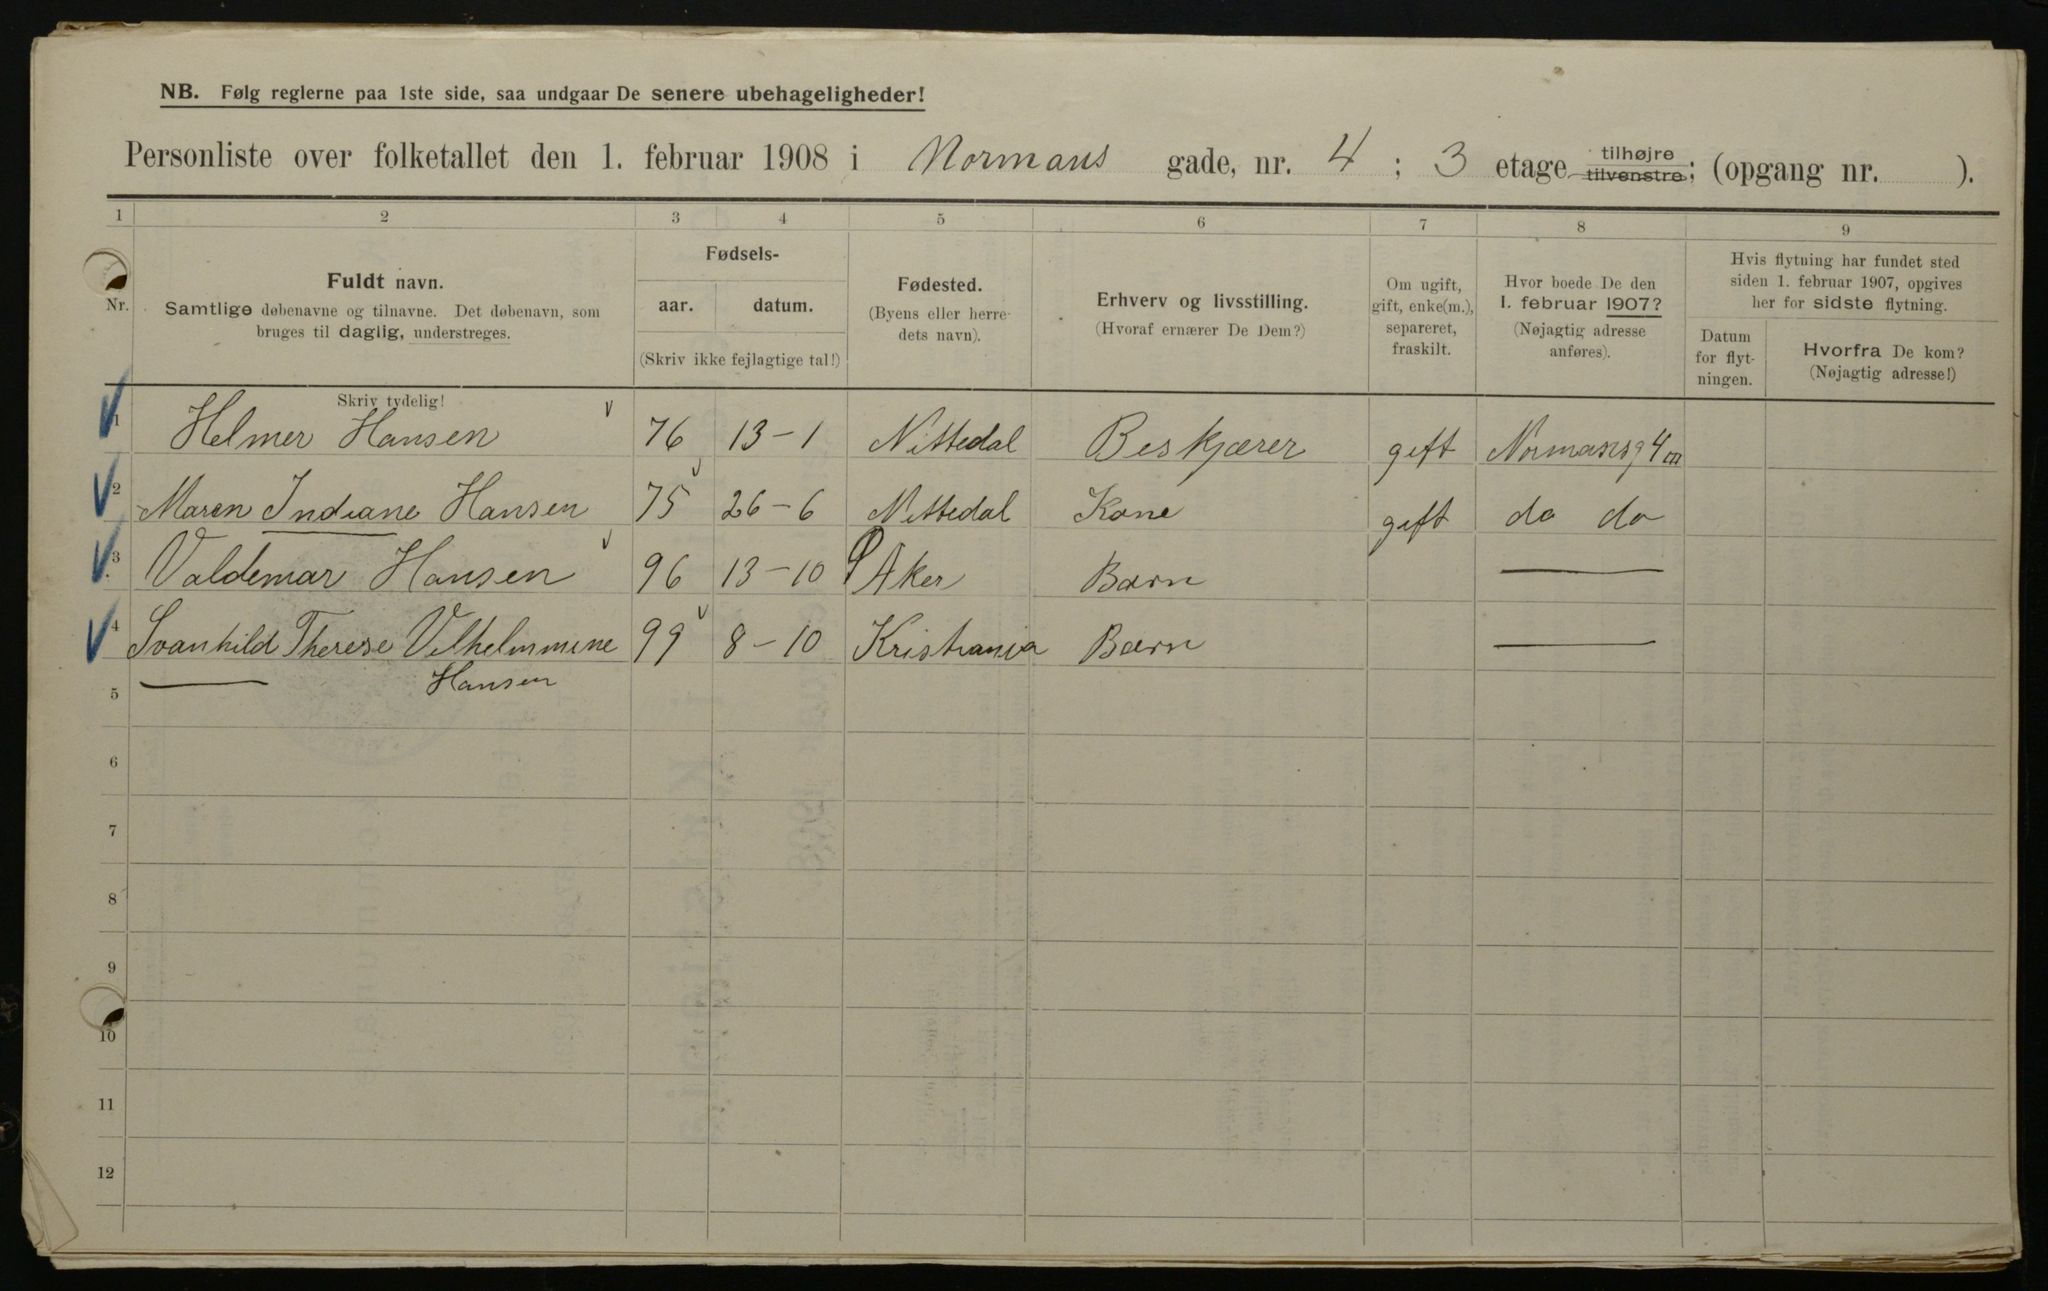 NB. Følg reglerne paa 1ste side, saa undgaar De senere ubehageligheder!
Personliste over folketallet den 1. februar 1908 i Normans gade, nr. 4 ; 3 etage tilhøjre tilvenstre; (opgang nr. ).
1 2 3 4 5 6 7 8 9
Nr.
Fuldt navn.
Samtlige døbenavne og tilnavne. Det døbenavn, som
bruges til daglig, understreges.
Skriv tydelig!
Fødsels-
aar. datum.
(Skriv ikke fejlagtige tal!)
Fødested.
(Byens eller herre-
dets navn).
Erhverv og livsstilling.
(Hvoraf ernærer De Dem?)
Om ugift,
gift, enke(m.),
separeret,
fraskilt.
Hvor boede De den
1. februar 1907?
(Nøjagtig adresse
anføres).
Hvis flytning har fundet sted
siden 1. februar 1907, opgives
her for sidste flytning.
Datum
for flyt-
ningen.
Hvorfra De kom?
(Nøjagtig adresse!)
1 Helmer Hansen 76 13-1 Nittedal Beskjærer gift Normansg 4 III
2 Maren Indiane Hansen 75 26-6 Nittedal Kone gift do do
3 Valdemar Hansen 96 13-10 Aker Barn —
4 Svanhild Therese Vilhelmmine 99 8-10 Kristiania Barn —
Hansen
5
6
7
8
9
10
11
12